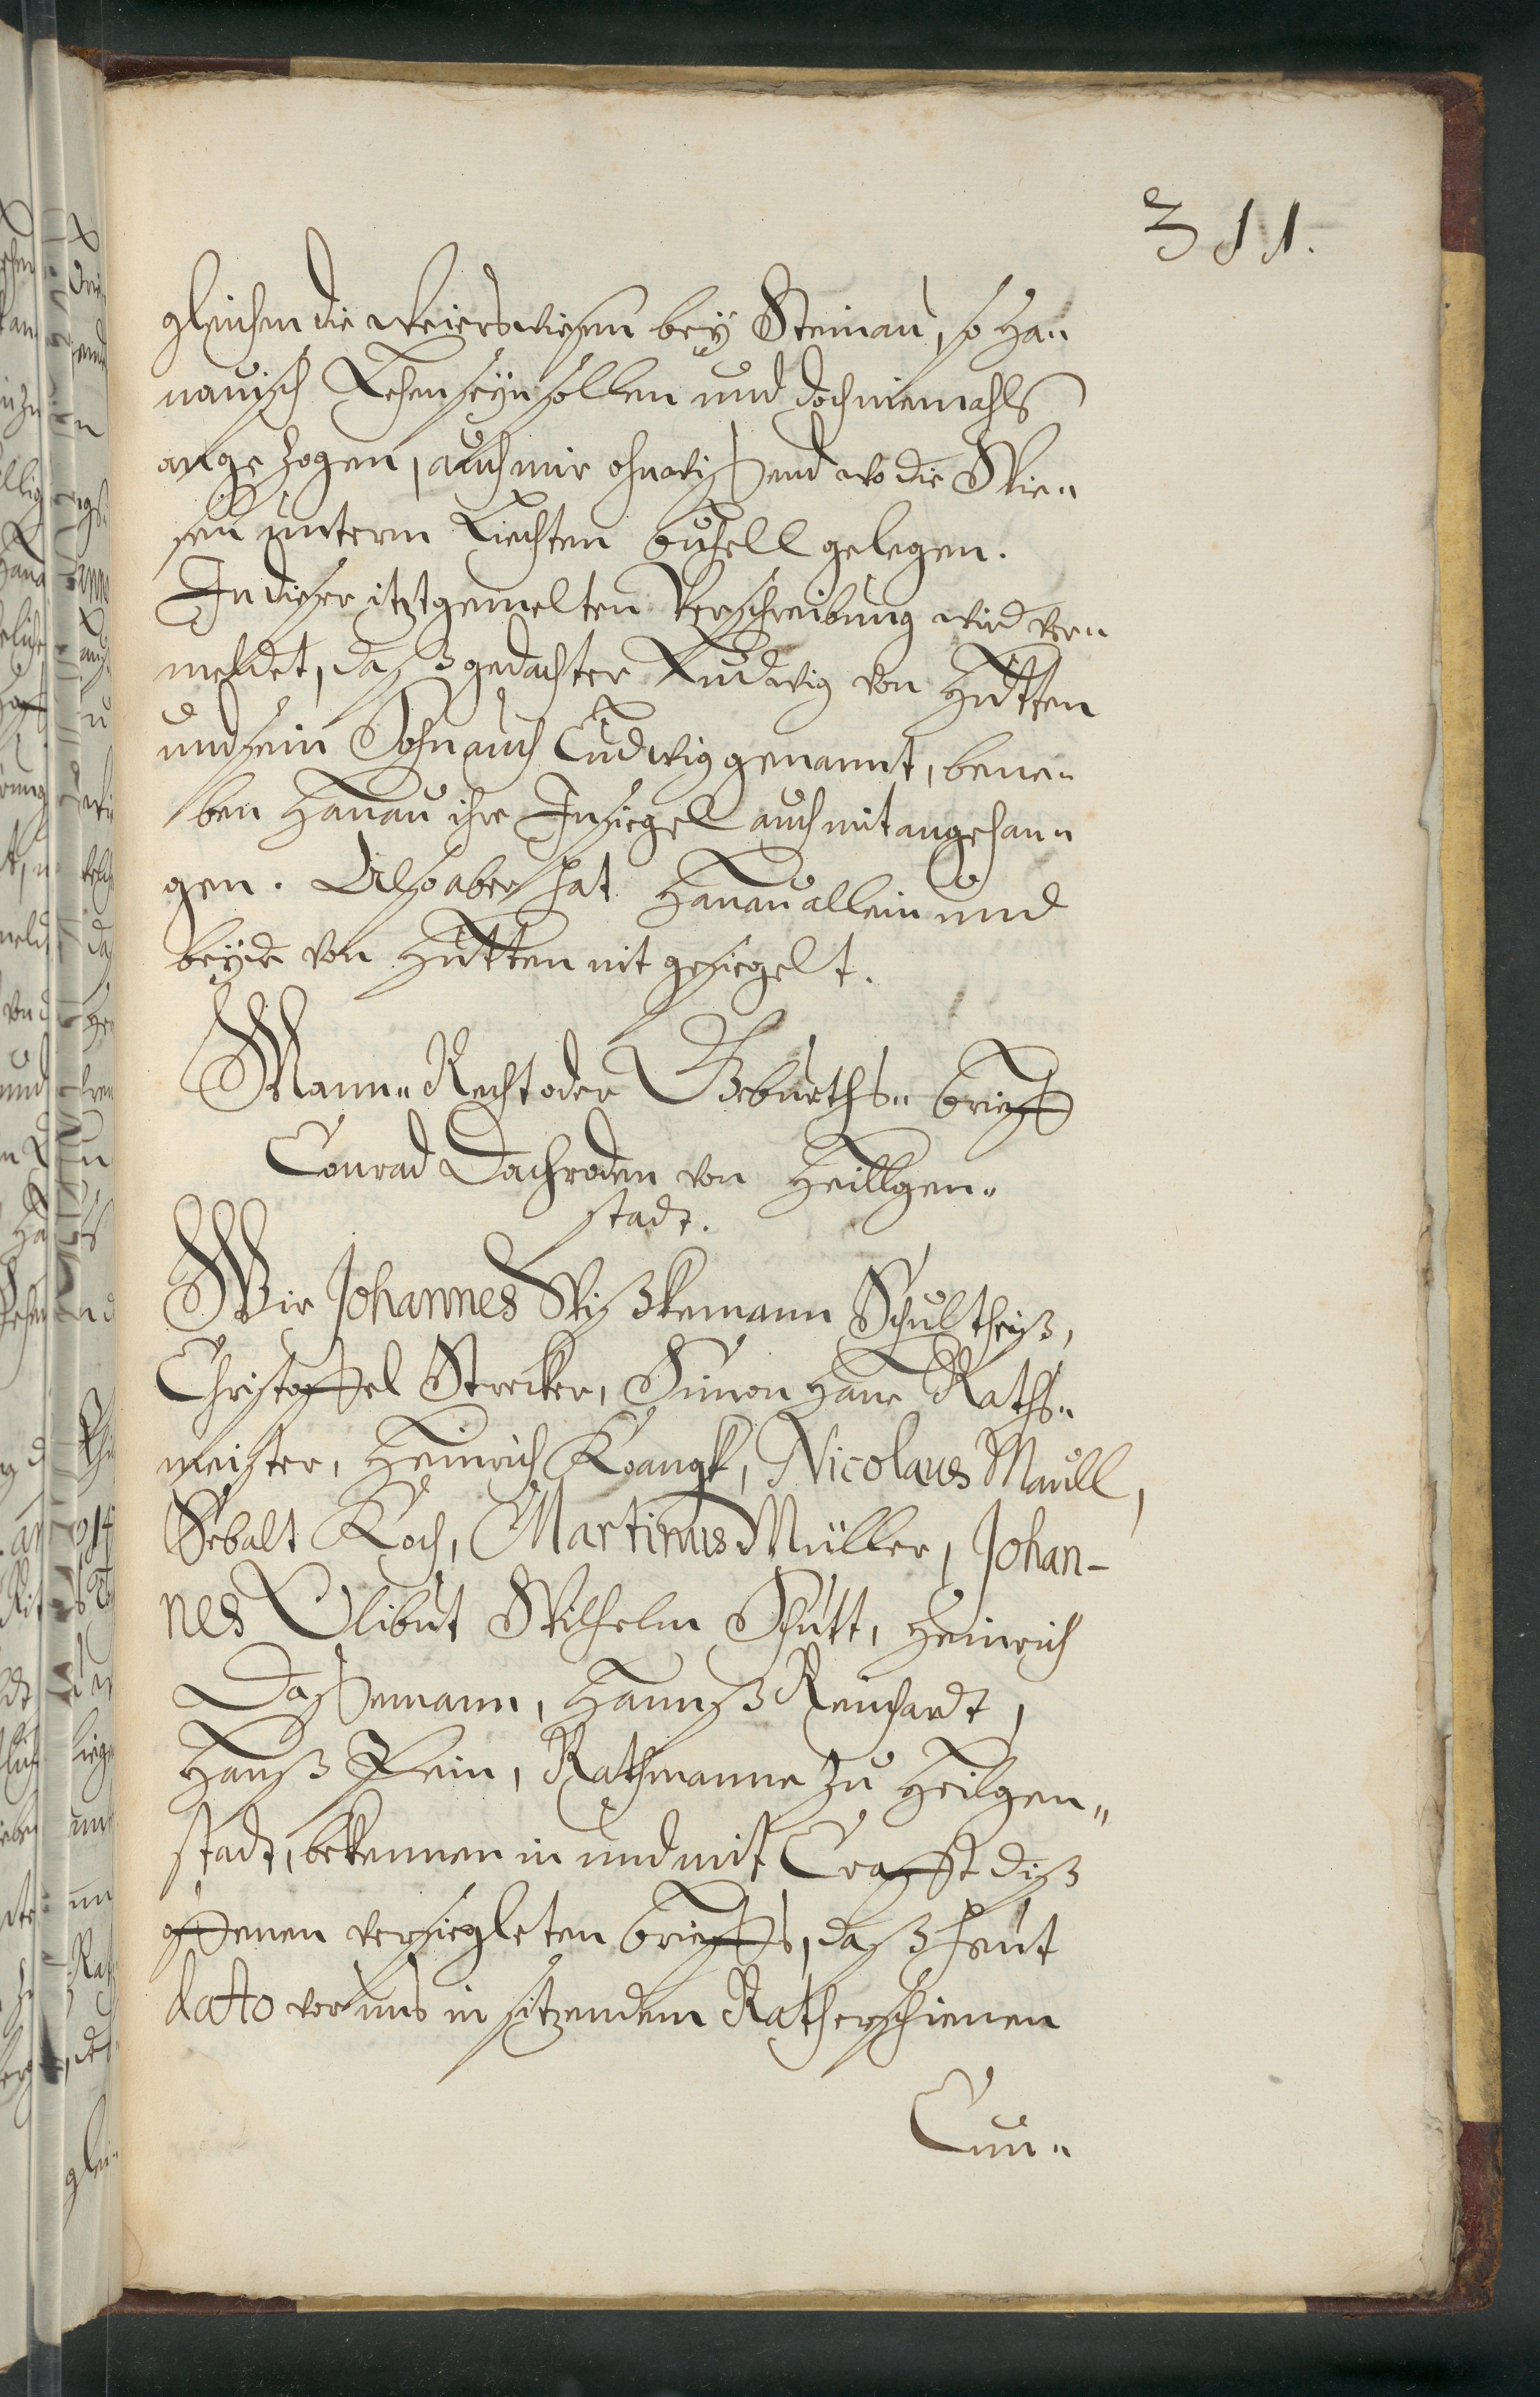 311.
gleichen die Weierswiesen bey Steinau, so Ha„
nauisch Lehen seyn sollen und doch niemahls
angezogen, auch mir ohnwissend wo die Wie„
sen unterm Liechten Buhell gelegen.
In dieser itztgemelten Verschreibung wird ver„
meldet, daß gedachter Ludwig von Hutten
und sein Sohn auch Ludwig genannt, bene„
ben Hanau ihre Insiegel auch mit angehan„
gen. Also aber hat Hanau allein und
beyde von Hutten nit gesiegelt.
Mann„ Recht oder Geburths„ brieff
Conrad Dachroden von Heillgen„
stadt.
Wir Johannes Wißkemann Schultheiß,
Christoffel Strecker, Simon Hane Raths„
meister, Heinrich Krangk, Nicolaus Maull,
Sebalt Koch, Martinus Müller, Johan-
nes Clibut Wilhelm Schutt, Heinrich
Dassemann, Hannß Reinhardt,
Hanß Fein, Rathmanne zu Heilgen„
stadt, bekennen in und mit Crafft diß
offenen versiegleten brieffs, daß heut
dato vor uns in sitzendem Rath erschienen
Cun„